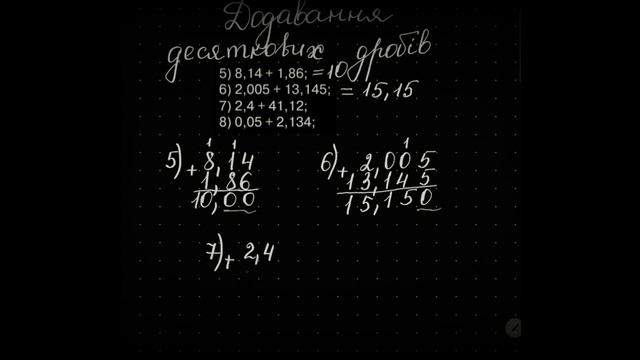 Додавання
десяткових дробів
5) 8,14 + 1,86; = 10
6) 2,005 + 13,145; = 15,15
7) 2,4 + 41,12;
8) 0,05 + 2,134;
1 1
5) + 8,14
1,86
10,00
1
6) + 2,005
13,145
15,150
7) + 2,4